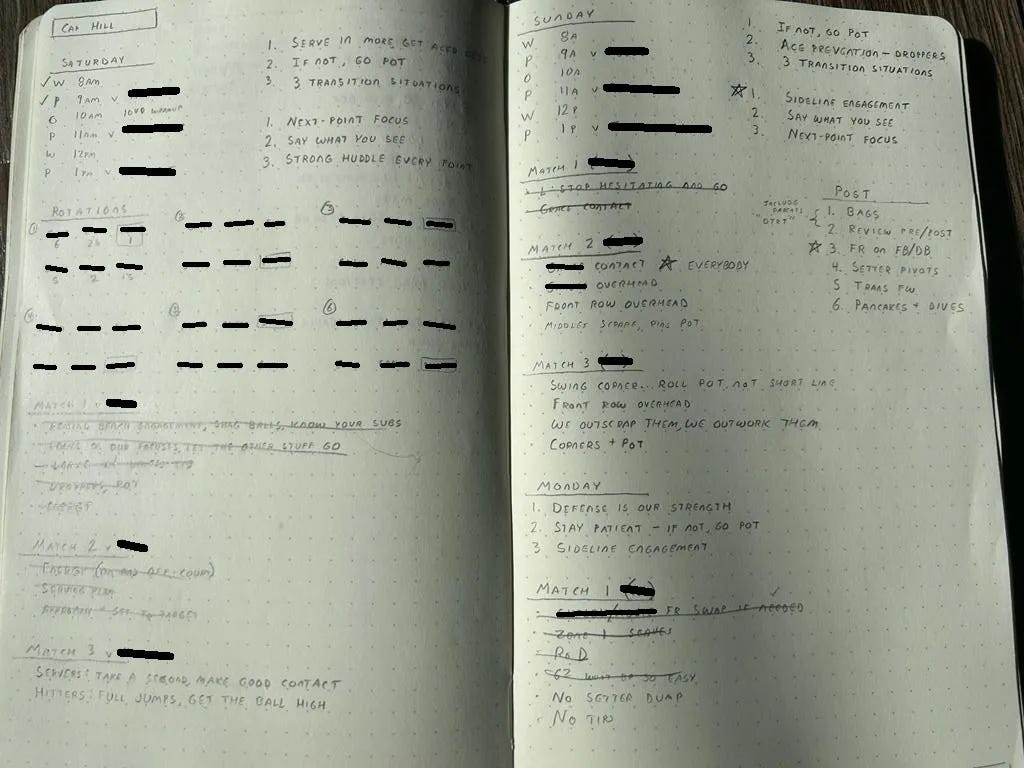 CAP HILL
SATURDAY
✓ W 8AM
✓ P 9AM V
O 10AM
P 11AM V
W 12PM
P 1PM V
1. SERVE IN MORE, GET ACED
2. IF NOT, GO POT
3. 3 TRANSITION SITUATIONS
1. NEXT-POINT FOCUS
2. SAY WHAT YOU SEE
3. STRONG HUDDLE EVERY POINT
ROTATIONS
①
6 1
5 2 13
②
③
④
⑤
⑥
MATCH 1 V
ENGAGEMENT, SHAG BALLS, KNOW YOUR SUBS
FOCUS ON OUR FOCUSES, LET THE OTHER STUFF GO
MATCH 2 V
ENERGY (ON AND OFF COURT)
SERVING PLAN
MATCH 3 V
SERVERS: TAKE A SECOND, MAKE GOOD CONTACT
HITTERS: FULL JUMPS, GET THE BALL HIGH
SUNDAY
W 8A
P 9A V
O 10A
P 11A V
W 12P
P 1P V
1. IF NOT, GO POT
2. ACE PREVENTION - DROPPERS
3. 3 TRANSITION SITUATIONS
☆ 1. SIDELINE ENGAGEMENT
2. SAY WHAT YOU SEE
3. NEXT-POINT FOCUS
MATCH 1
STOP HESITATING AND GO
CONTACT
MATCH 2
CONTACT ☆ EVERYBODY
OVERHEAD
FRONT ROW OVERHEAD
MIDDLES SCRAPE, PINS POT
POST
INCLUDE PARENTS
1. BAGS
2. REVIEW PRE/POST
☆ 3. FR ON FB/DB
4. SETTER PIVOTS
5 TRANS FW
6. PANCAKES + DIVES
MATCH 3
SWING CORNER... ROLL POT, NOT SHORT LINE
FRONT ROW OVERHEAD
WE OUTSCRAP THEM, WE OUTWORK THEM
CORNERS + POT
MONDAY
1. DEFENSE IS OUR STRENGTH
2. STAY PATIENT - IF NOT, GO POT
3 SIDELINE ENGAGEMENT
MATCH 1
FR SWAP IF NEEDED ✓
ZONE 1 SERVES
R D
62 WON'T BE SO EASY
NO SETTER DUMP
NO TIPS